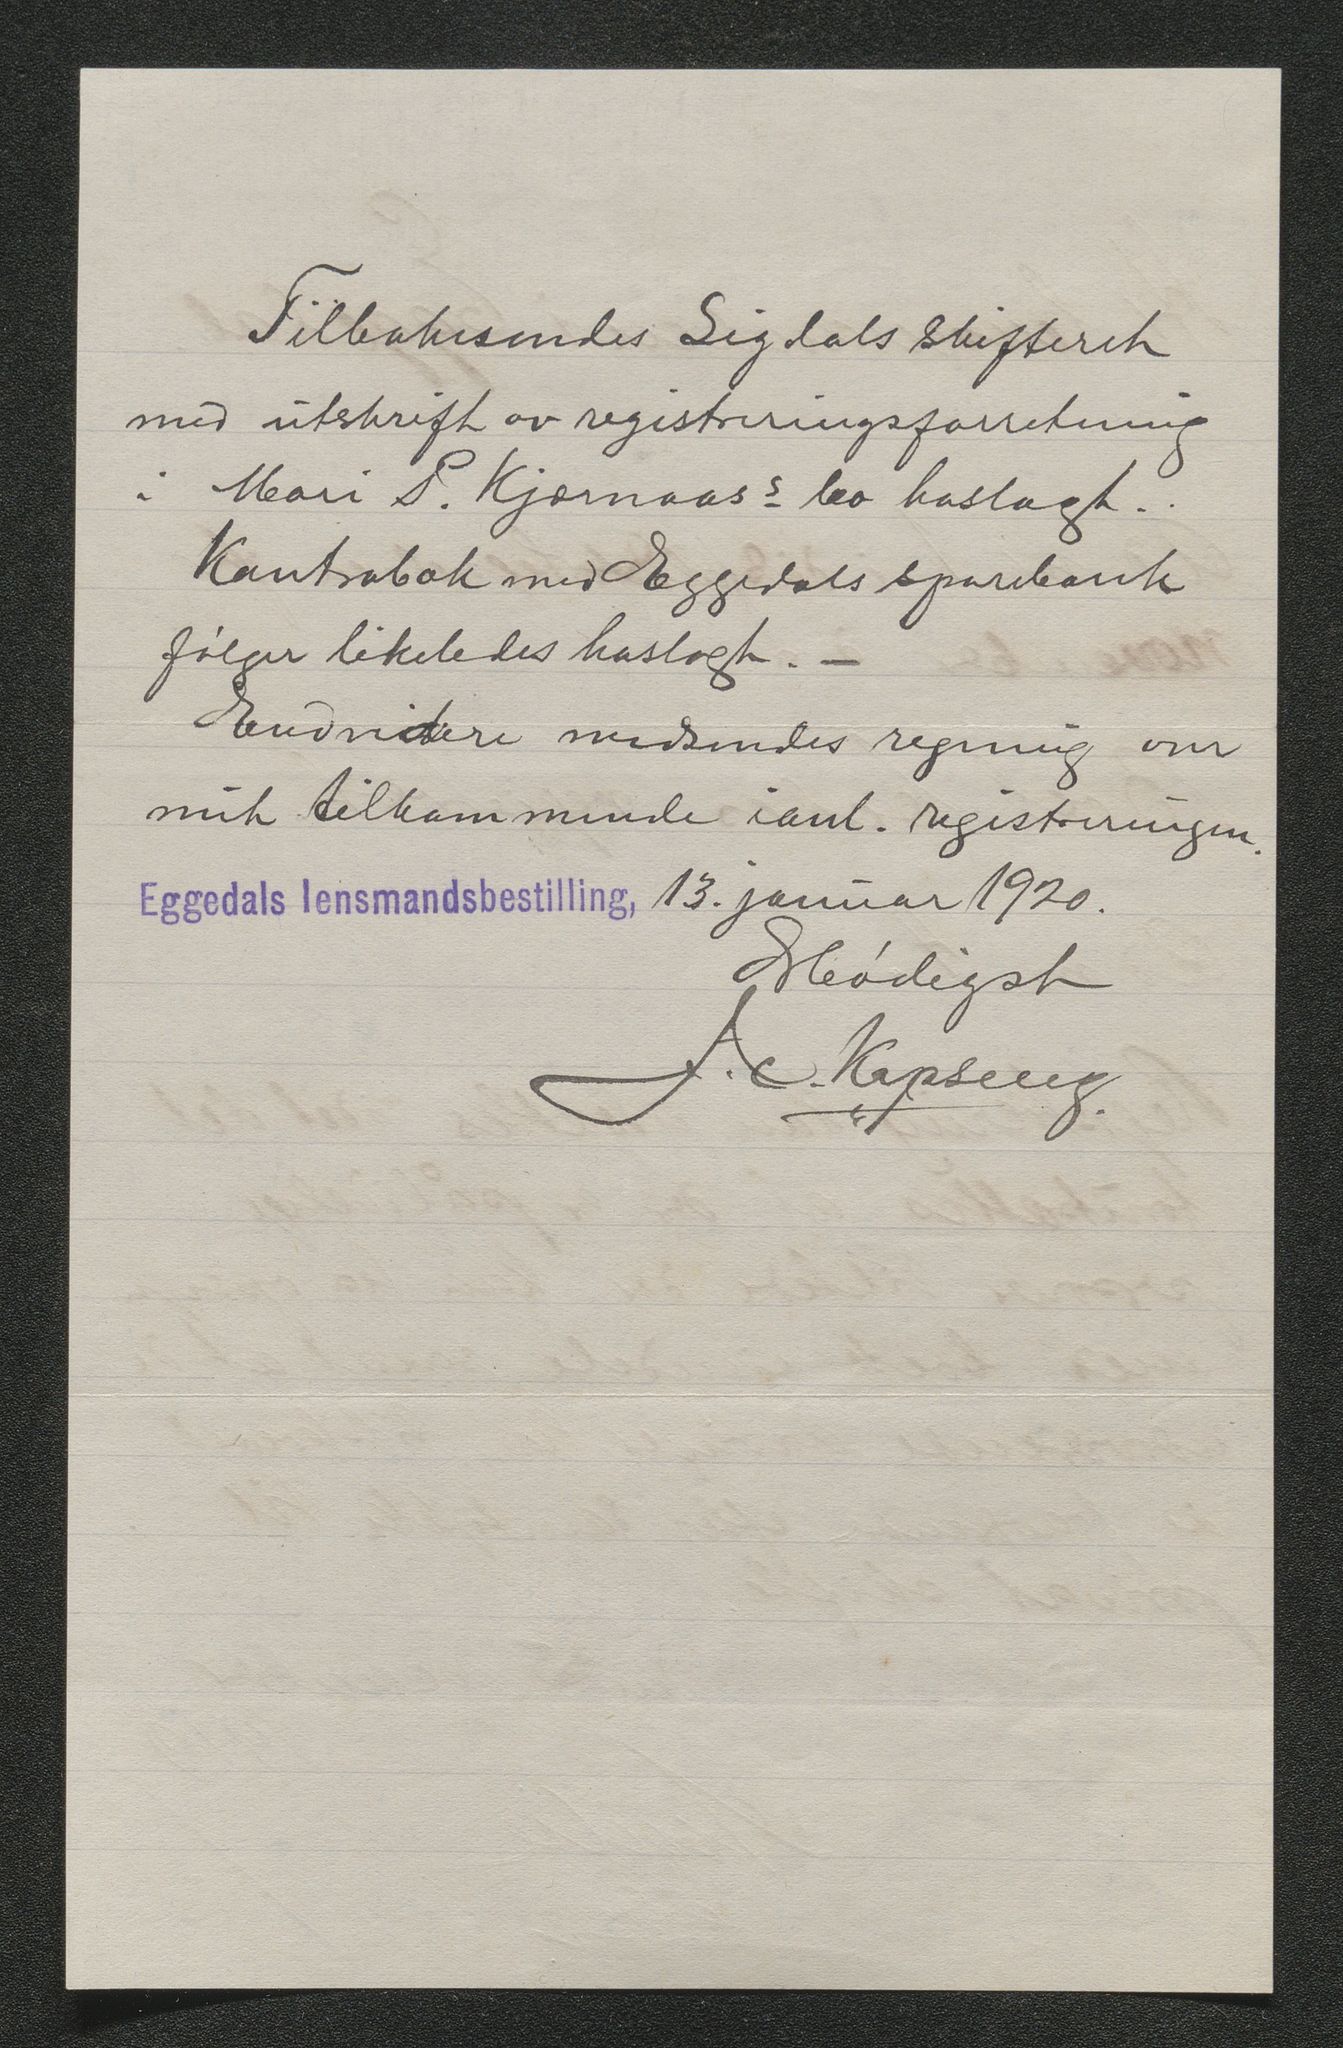 Tilbakesendes Sigdals skifteret
med utskrift av registreringsforretning
i Mari P. Kjærnaas's bo haslagt.
Kontrabok med Eggedals sparebank
følger likeledes haslagt. —
Endvidere medsendes regning over
mit tilkommende i anl. registreringen.
Eggedals lensmandsbestilling, 13. januar 1920.
Ærbødigst
A. C. Kopseng.